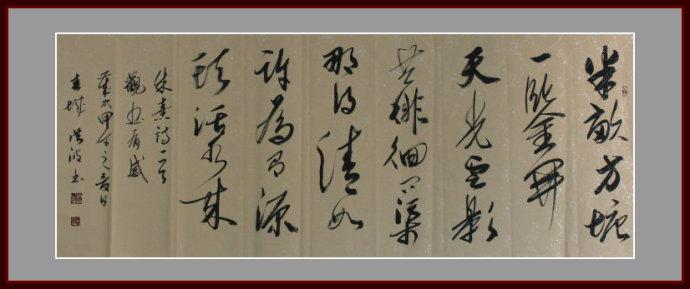 半畝方塘
一鑒開
天光雲影
共徘徊问渠
那得清如
許為有源
頭活水來
朱熹詩一首
觀书有感
歲次甲午之日
书